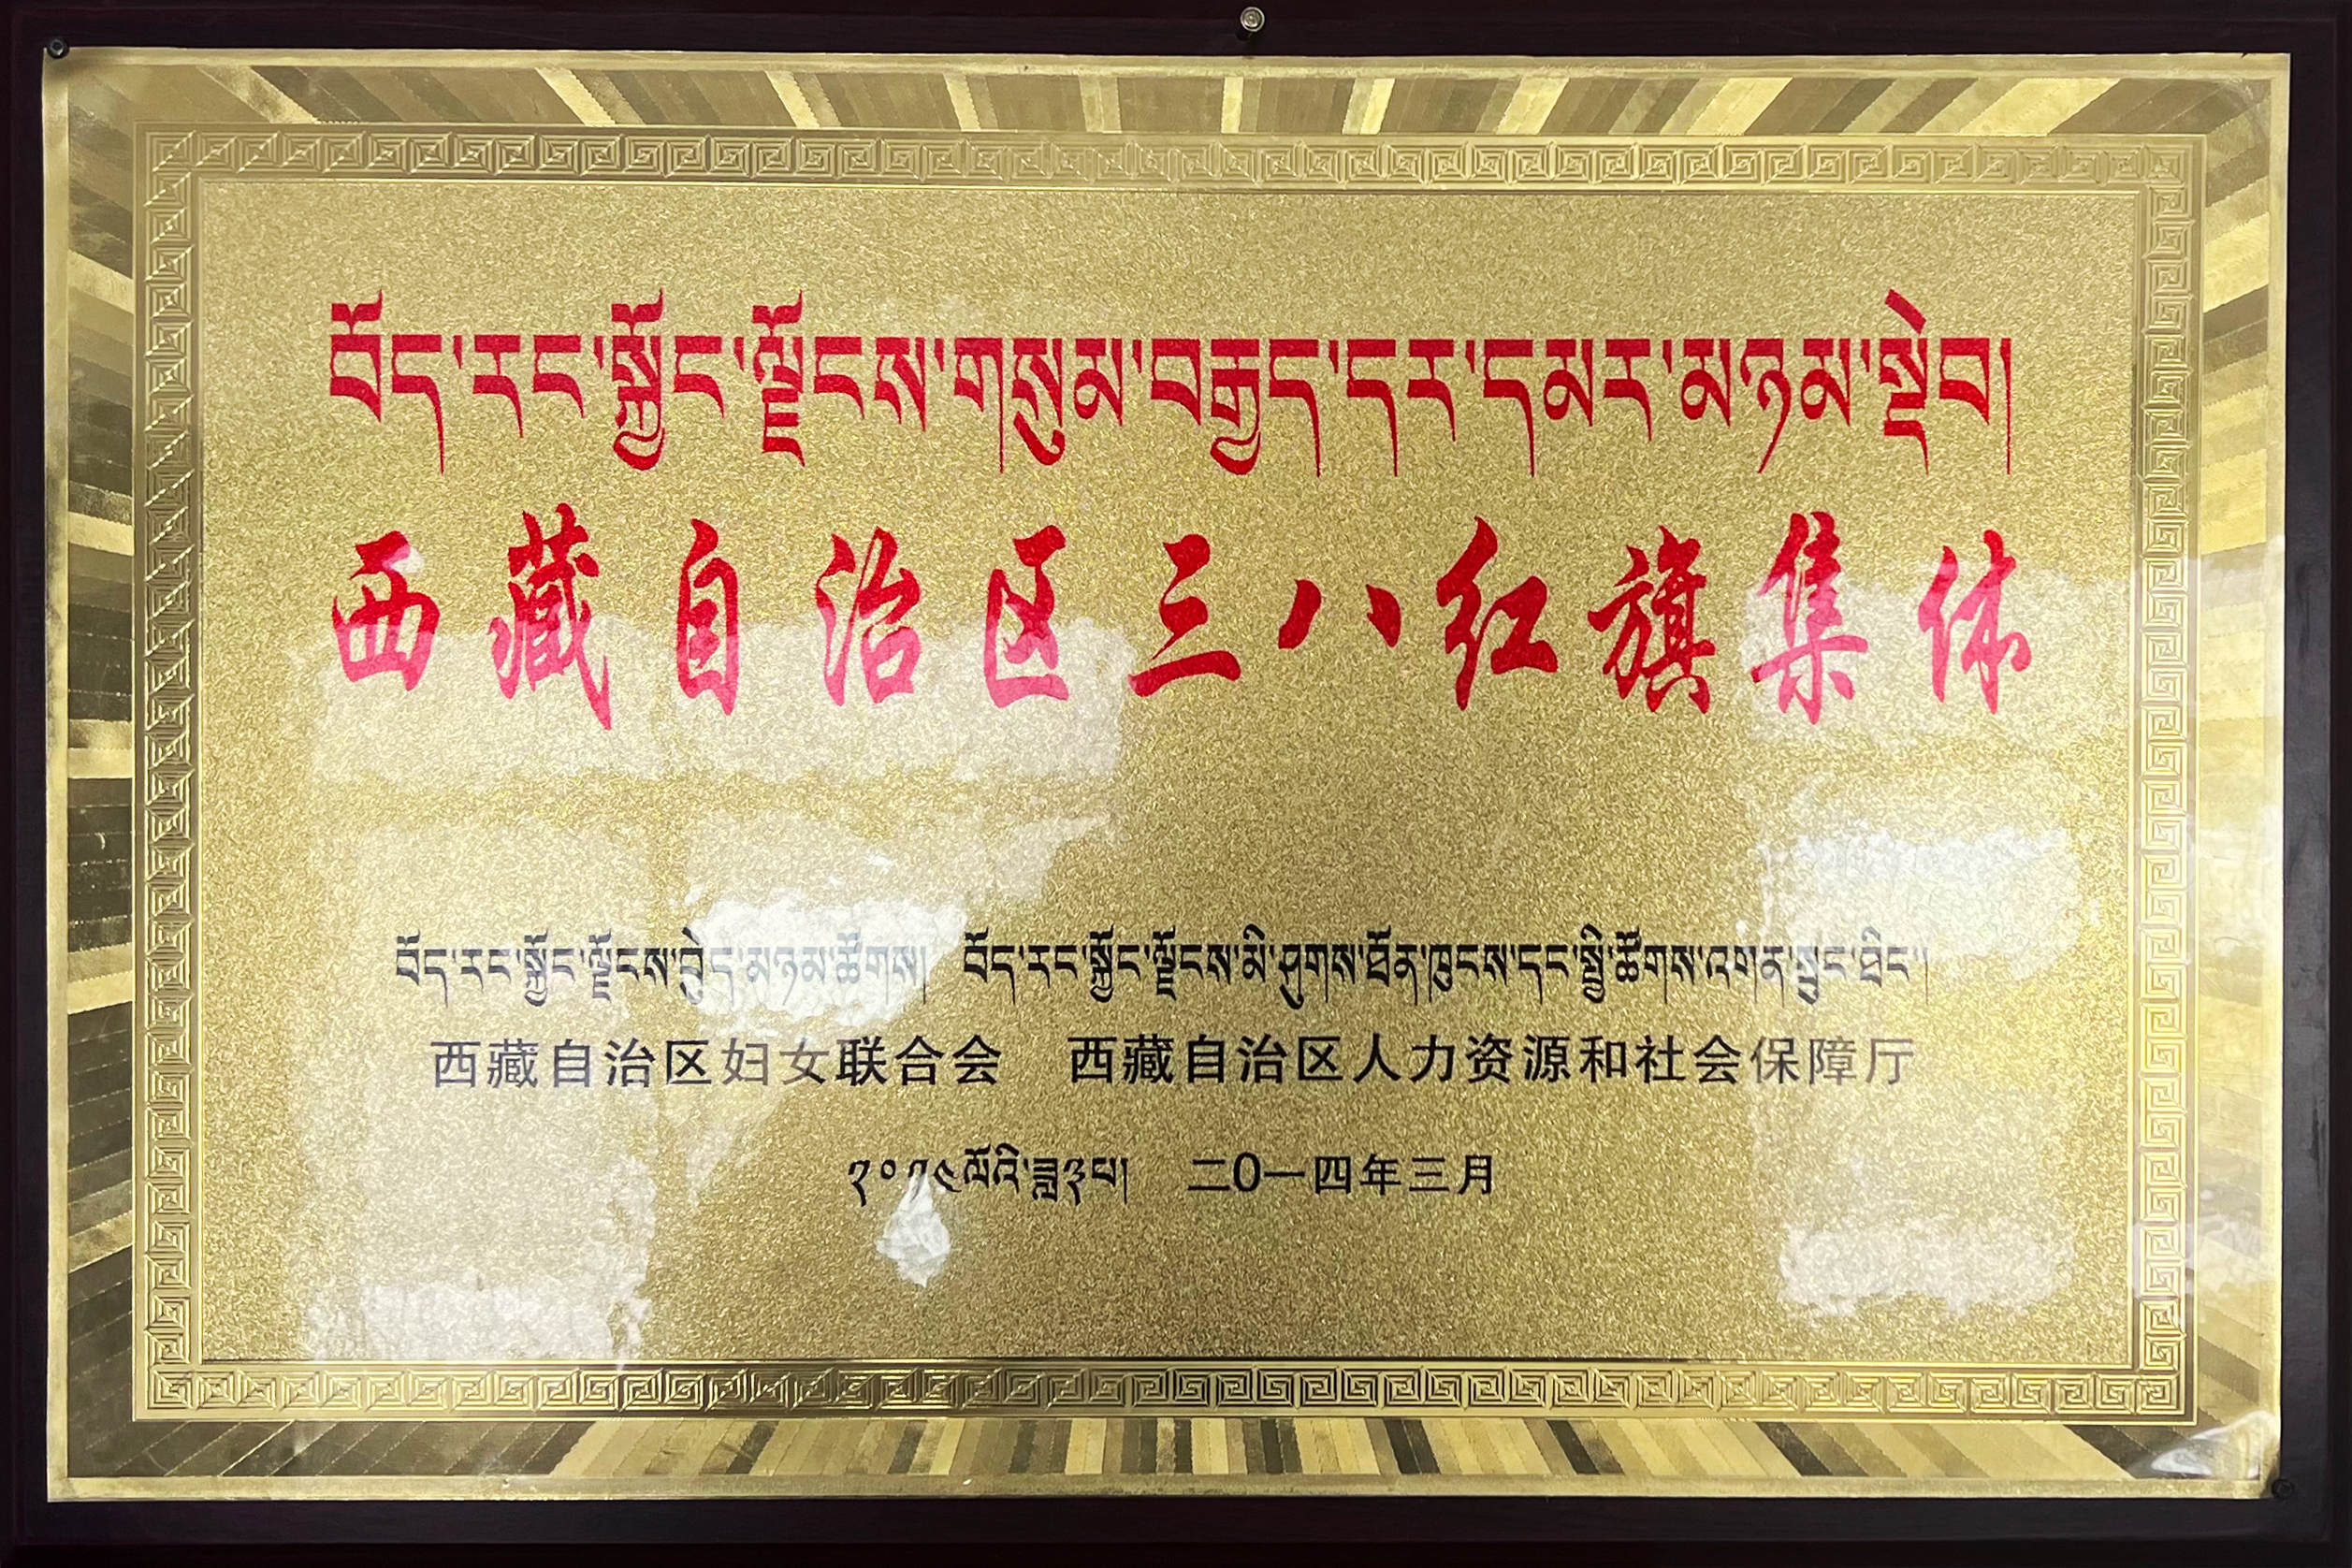 བོད་རང་སྐྱོང་ལྗོངས་གསུམ་བརྒྱད་དར་དམར་མཉམ་སྡེབ།
西藏自治区三八红旗集体
བོད་རང་སྐྱོང་ལྗོངས་བུད་མཉམ་ཚོགས། བོད་རང་སྐྱོང་ལྗོངས་མི་ཤུགས་ཐོན་ཁུངས་དང་སྤྱི་ཚོགས་འགན་སྲུང་ཐིང་།
西藏自治区妇女联合会 西藏自治区人力资源和社会保障厅
༢༠༡༤ལོའི་ཟླ༣པ། 二0一四年三月